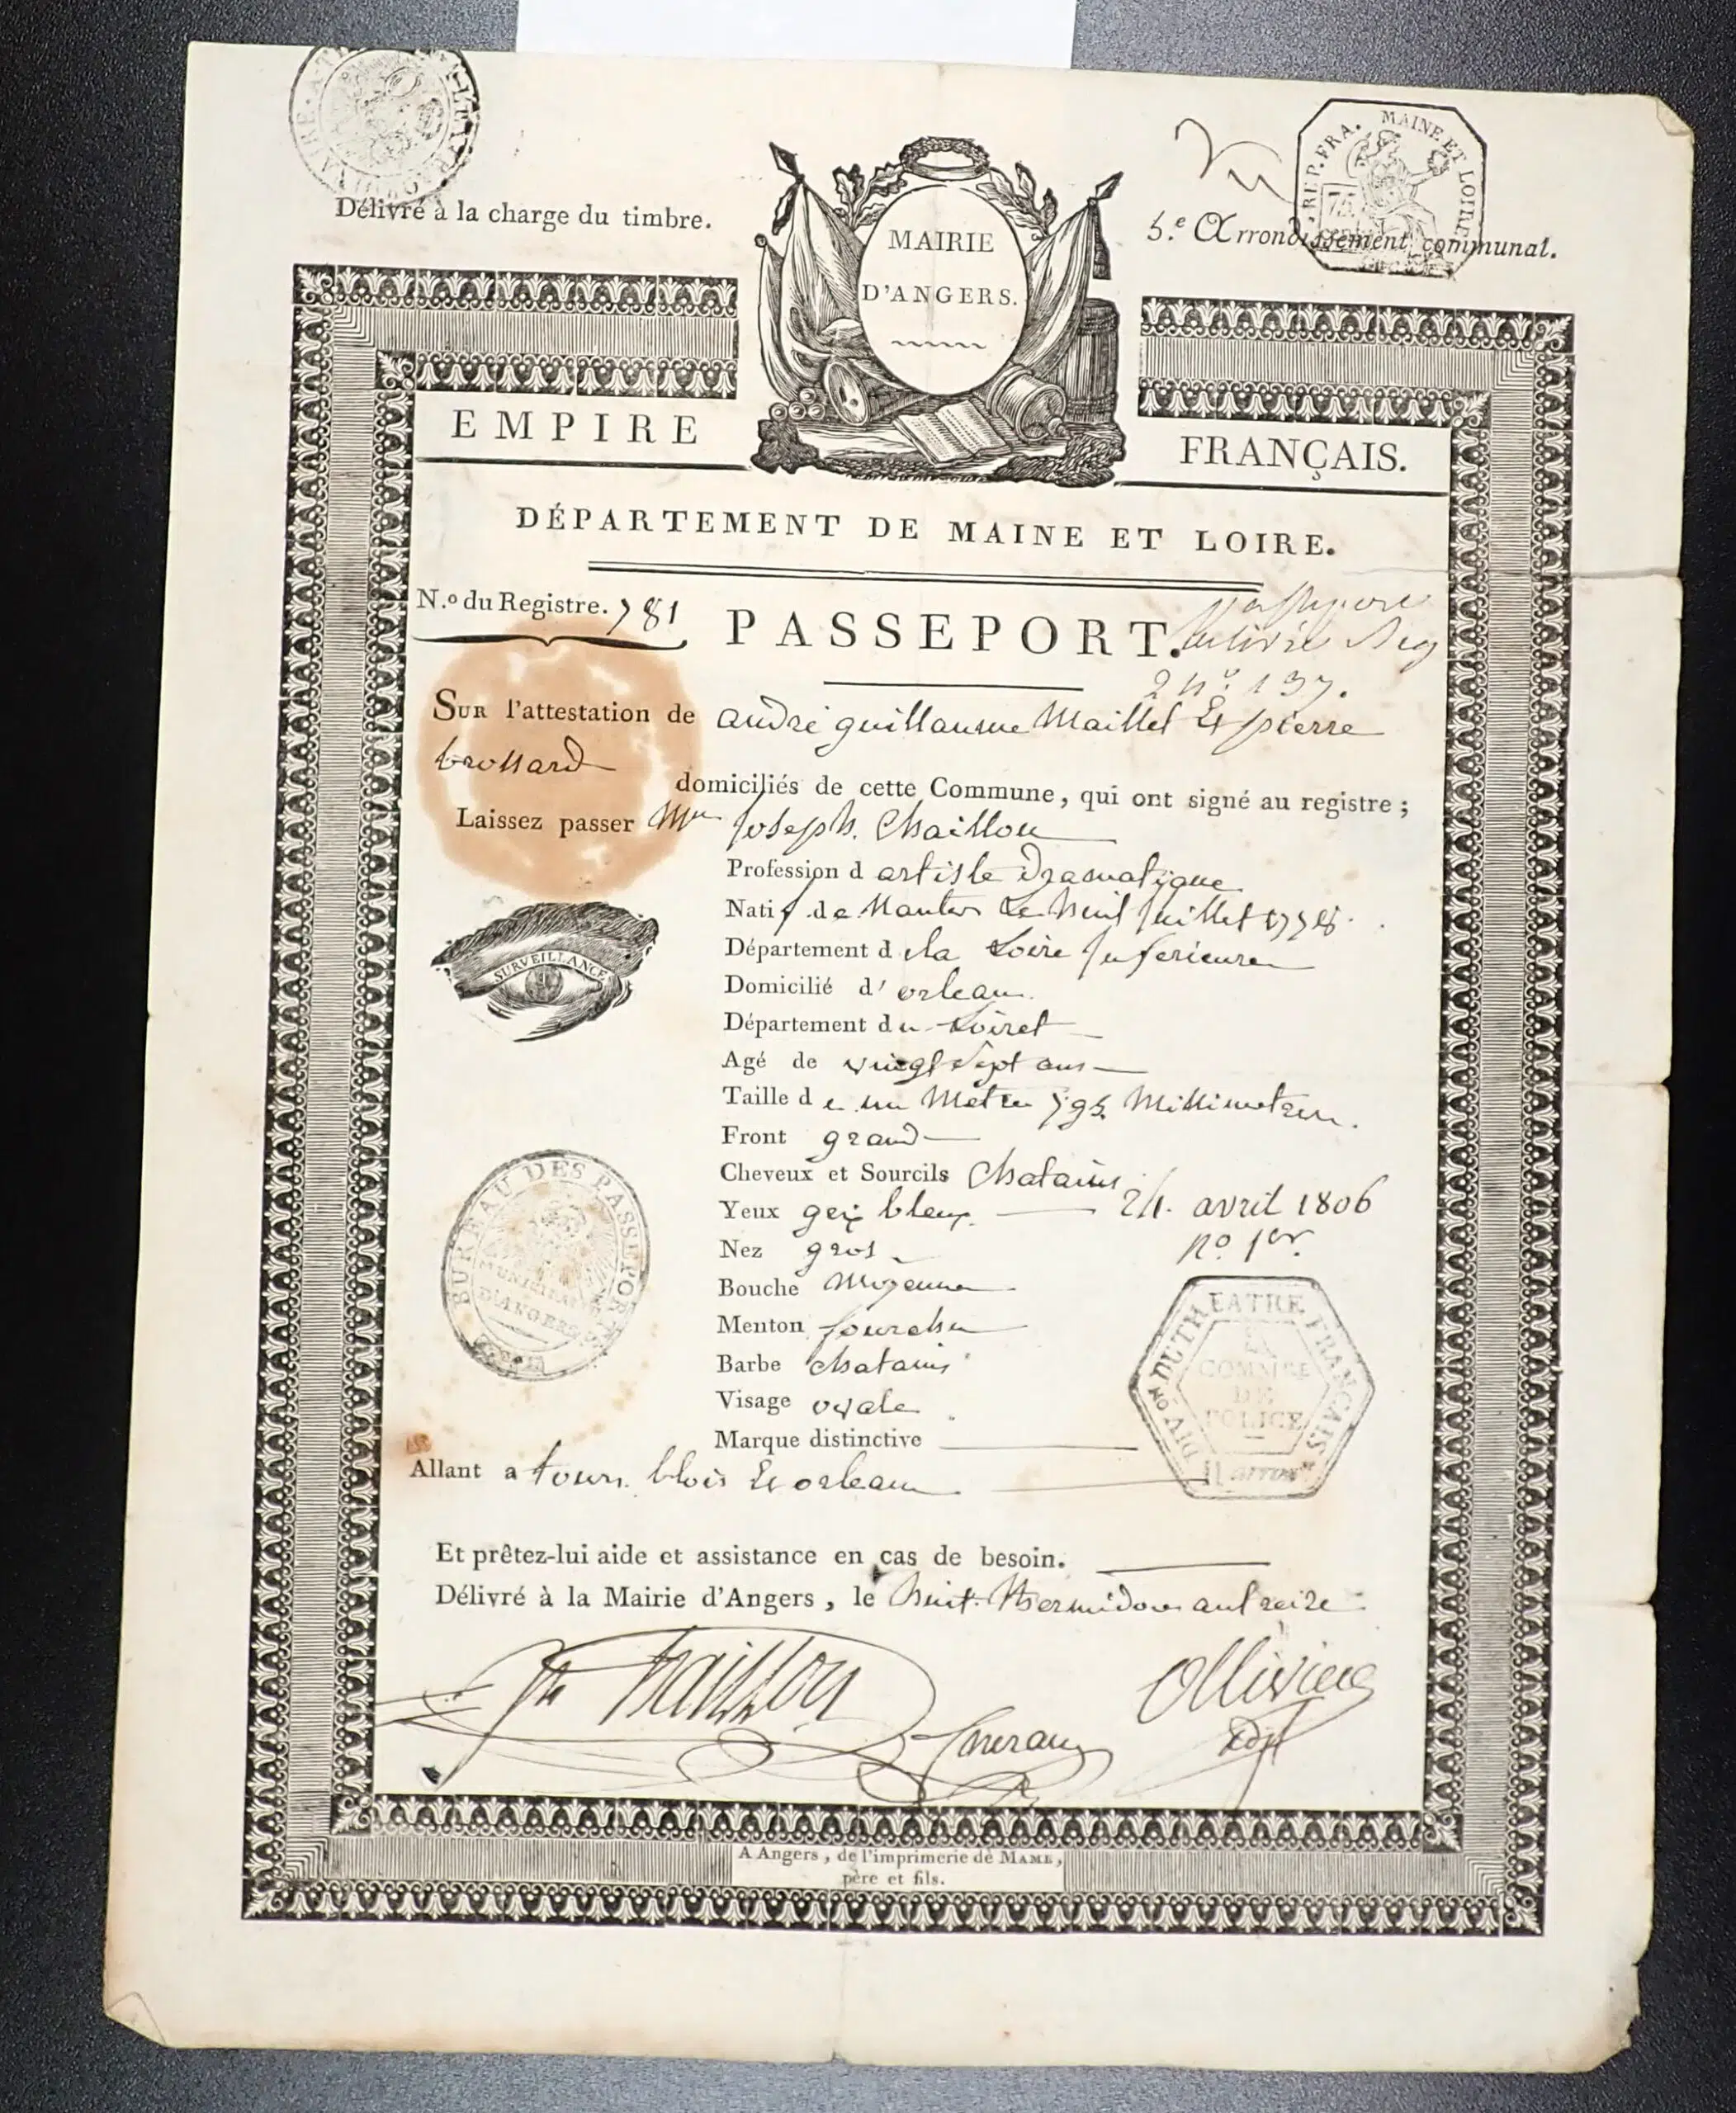 Délivré à la charge du timbre.
REP. FRA. MAINE ET LOIRE
75
5.e Arrondissement communal.
MAIRIE
D'ANGERS.
EMPIRE FRANÇAIS.
DÉPARTEMENT DE MAINE ET LOIRE.
N.o du Registre. 781
PASSEPORT.
passeport
délivré
2 n.o 137.
SUR l'attestation de andré guillaume Maillet Et pierre
brossard
domiciliés de cette Commune, qui ont signé au registre ;
Laissez passer Mr Joseph Chaillou
Profession d artiste Dramatique
Natif de Nantes Le huit juillet 1778.
Département d ela Loire Inferieure
SURVEILLANCE
Domicilié d' orleans
Département du Loiret
Agé de vingt Sept ans
Taille de un Metre 795 Millimetres.
Front grand
Cheveux et Sourcils Chatains
Yeux gris bleux 24. avril 1806
Nez gros no. 1er.
Bouche Moyenne
Menton fourchu
Barbe chatains
Visage ovale
Marque distinctive
BUREAU DES PASSEPORTS
MUNICIPALITÉ
D'ANGERS
DIVon DU THEATRE FRANCAIS
COMMRE
DE
POLICE
11 arrondt
Allant a tours blois Et orleans
Et prêtez-lui aide et assistance en cas de besoin.
Délivré à la Mairie d'Angers, le huit Thermidor an treize
Jh Chaillou
Ollivier
adjt
A Angers, de l'imprimerie de MAME,
père et fils.